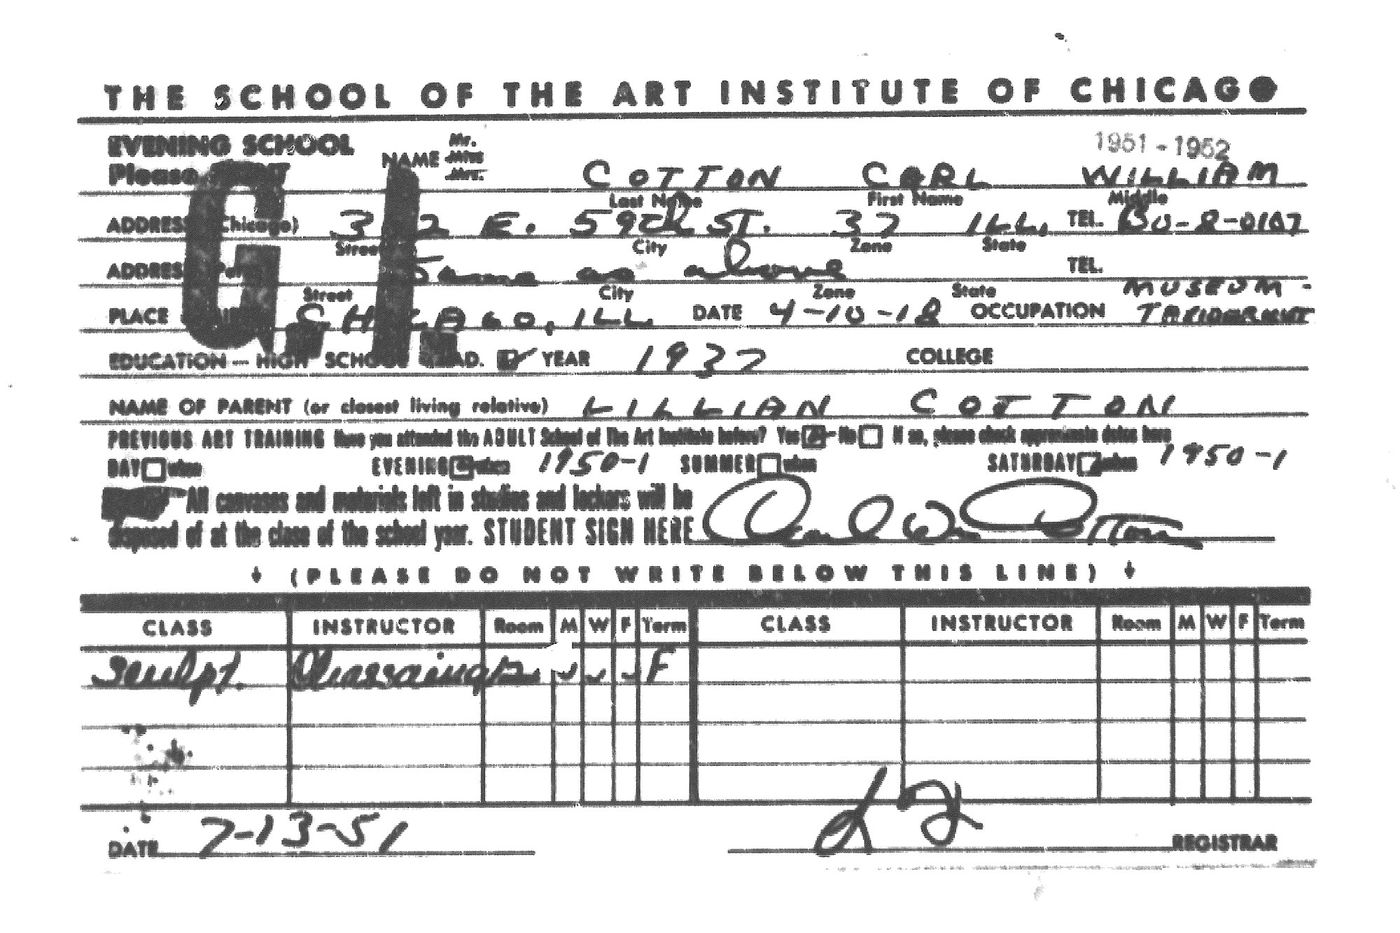 THE SCHOOL OF THE ART INSTITUTE OF CHICAGO
EVENING SCHOOL 1951 - 1952
Please
G.I.
NAME Mr. Miss Mrs. COTTON CARL WILLIAM
Last Name First Name Middle
ADDRESS (Chicago) 3 2 E. 59th ST. 37 ILL. TEL. BU-8-0107
Street City Zone State
ADDRESS Same as above TEL.
Street City Zone State
PLACE CHICAGO, ILL DATE 4-10-18 OCCUPATION MUSEUM - TAXIDERMIST
EDUCATION — HIGH SCHOOL GRAD. YEAR 1937 COLLEGE
NAME OF PARENT (or closest living relative) LILLIAN COTTON
PREVIOUS ART TRAINING Have you attended the ADULT School of The Art Institute before? Yes No If so, please check approximate dates here
DAY when EVENING when 1950-1 SUMMER when SATURDAY when 1950-1
All canvases and materials left in studios and lockers will be
disposed of at the close of the school year. STUDENT SIGN HERE Carl Wm Cotton
↓ (PLEASE DO NOT WRITE BELOW THIS LINE) ↓
CLASS INSTRUCTOR Room M W F Term CLASS INSTRUCTOR Room M W F Term
Sculpt. Chassaing F
DATE 7-13-51 REGISTRAR